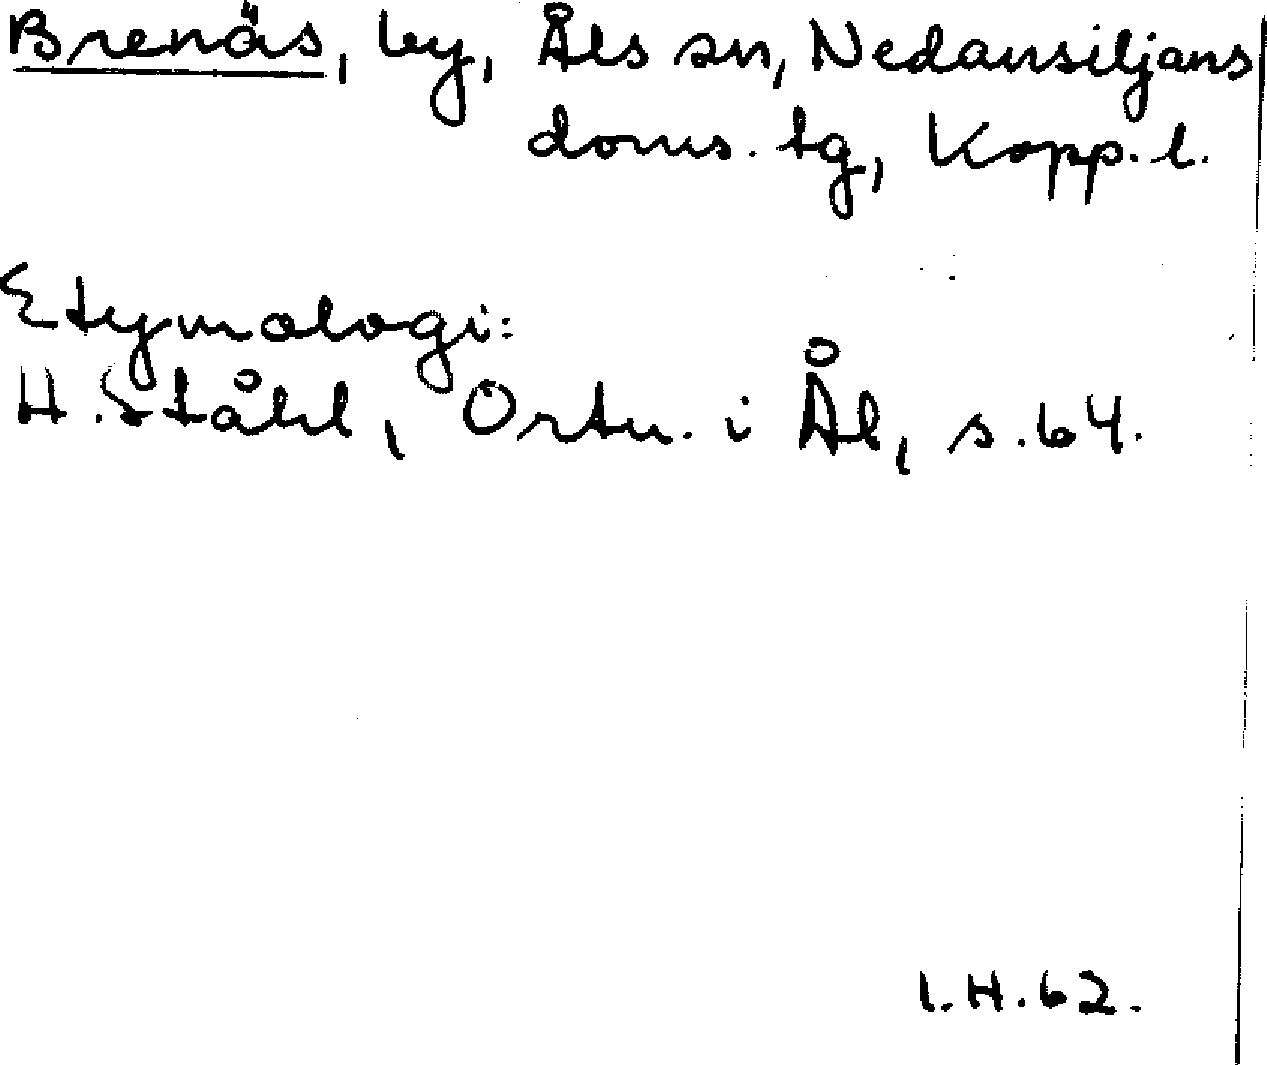 Brenäs, by, Åls sn, Nedansiljans
doms. tg, Kopp. l.
Etymologi:
H. Ståhl, Ortn. i Ål, s. 64.
I.H. 62.